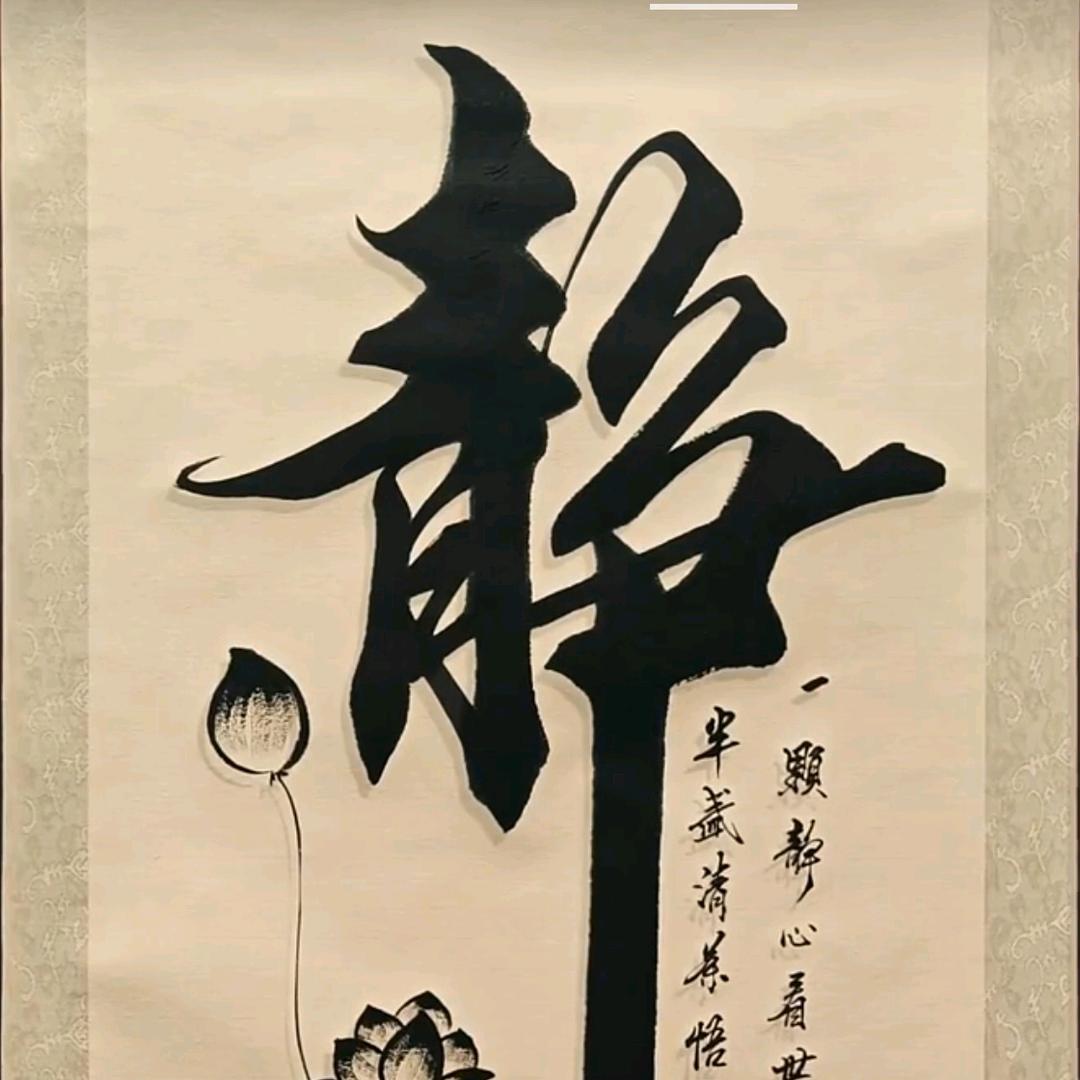 靜
一顆靜心看世
半盞清茶悟